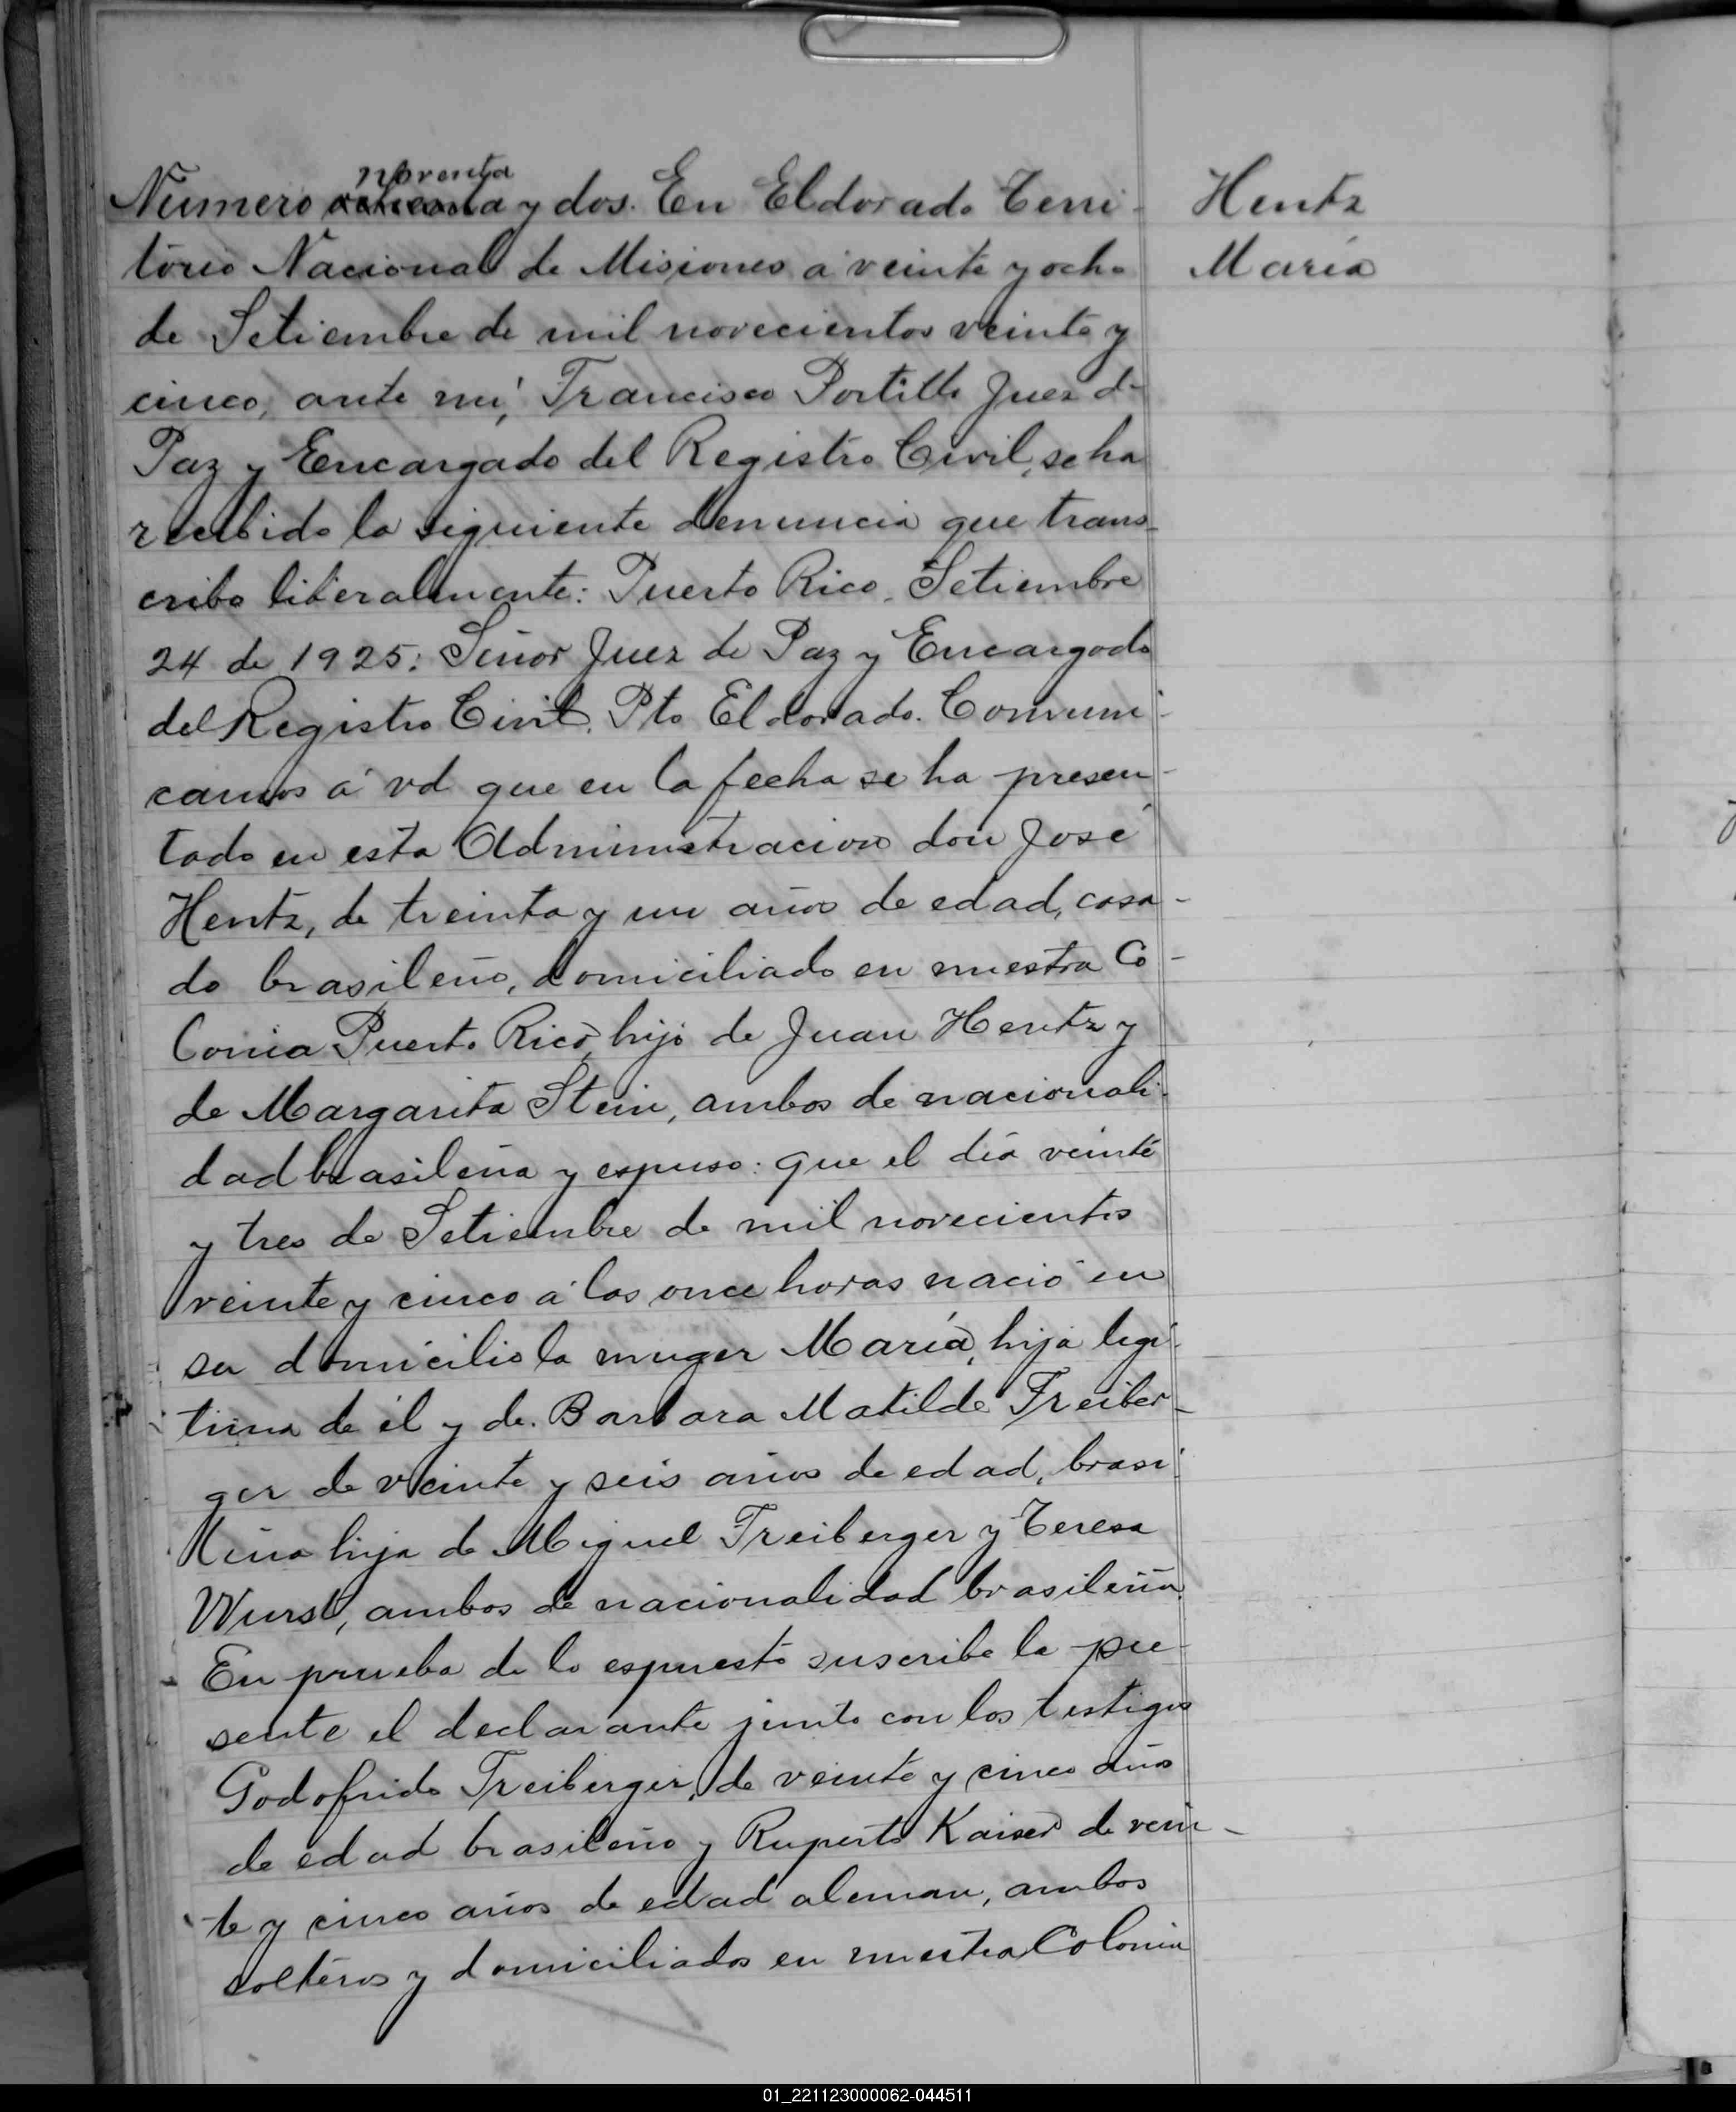 noventa
Numero ochenta y dos. En Eldorado Terri-
torio Nacional de Misiones a veinte y ocho
de Setiembre de mil novecientos veinte y
cinco, ante mi, Francisco Portillo Juez de
Paz y Encargado del Registro Civil, se ha
recibido la siguiente denuncia que trans-
cribo literalmente: Puerto Rico, Setiembre
24 de 1925: Señor Juez de Paz y Encargado
del Registro Civil. Pto Eldorado. Comuni-
camos á vd que en la fecha se ha presen-
tado en esta Administracion don José
Hentz, de treinta y un años de edad, casa-
do brasileño, domiciliado en nuestra Co-
lonia Puerto Rico, hijo de Juan Hentz y
de Margarita Stein, ambos de nacionali-
dad brasileña y espuso: que el día veinte
y tres de Setiembre de mil novecientos
veinte y cinco á las once horas nació en
su domicilio la muger María, hija legi-
tima de él y de Barbara Matilde Freiber-
ger de veinte y seis años de edad, brasi-
leña hija de Miguel Freiberger y Teresa
Wurst, ambos de nacionalidad brasileña.
En prueba de lo espuesto suscribe la pre-
sente el declarante junto con los testigos
Godofrido Freiberger, de veinte y cinco años
de edad brasileño y Ruperto Kaiser de vein-
te y cinco años de edad aleman, ambos
solteros y domiciliados en nuestra Colonia
Hentz
María
01_221123000062-044511